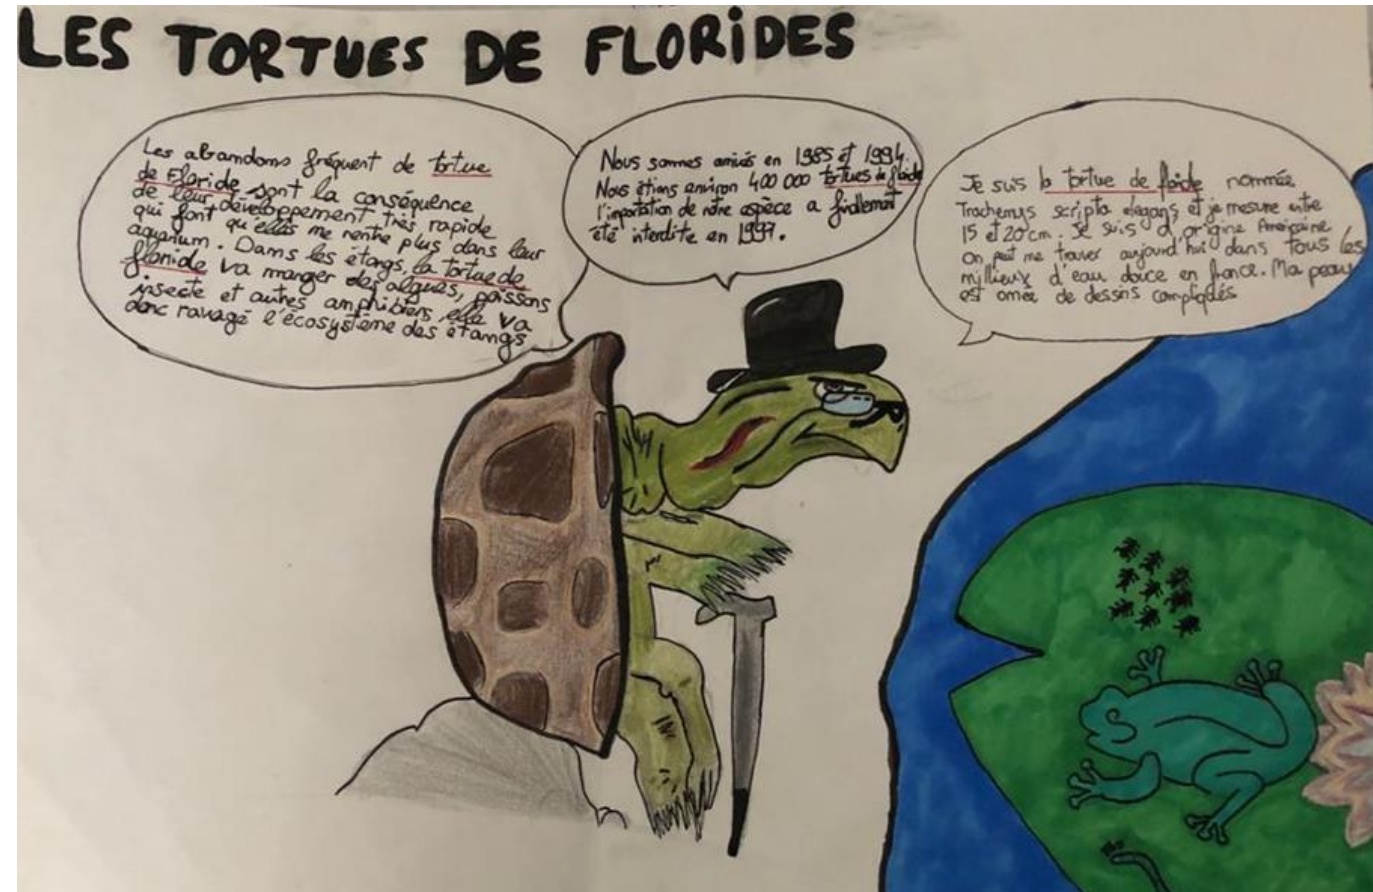 LES TORTUES DE FLORiDES
Les abandons fréquent de tortue
de Floride sont la conséquence
de leur développement très rapide
qui font qu'elles me rentre plus dans leur
aquarium. Dans les étangs, la tortue de
floride va manger des algues, poissons
insecte et autres amphibiens elle va
donc ravagé l'écosystème des étangs
Nous sommes arrivés en 1985 et 1994.
Nous étions environ 400 000 tortues de floride
l'importation de notre espèce a finallement
été interdite en 1997.
Je suis la tortue de floride nommée
Trachemys scripta elegans et je mesure entre
15 et 20cm. Je suis d'origine Américaine
On peut me trouver aujourd'hui dans tous les
millieux d'eau douce en france. Ma peau
est ornée de dessins compliqués